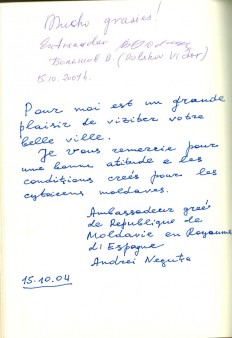 Mucho grasias!
Embaxador
Болашов В. (Bolshov Victor)
15.10.2004.
Pour moi est un grande
plaisir de viziter votre
belle ville.
Je vous remercie pour
une bonne atitude e les
conditions creés pour les
cytoiens moldaves.
Ambassadeur greé
de Republique de
Moldavie en Royaume
d'Espagne
Andrei Neguta
15.10.04